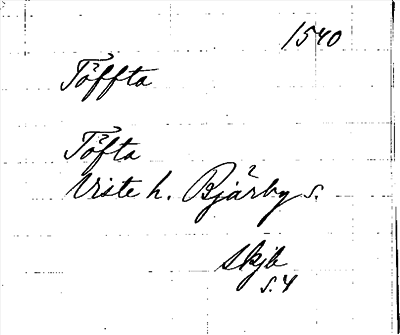 1540
Töffta
Töfta
Viste h. Bjärby s.
skjb
s. 4